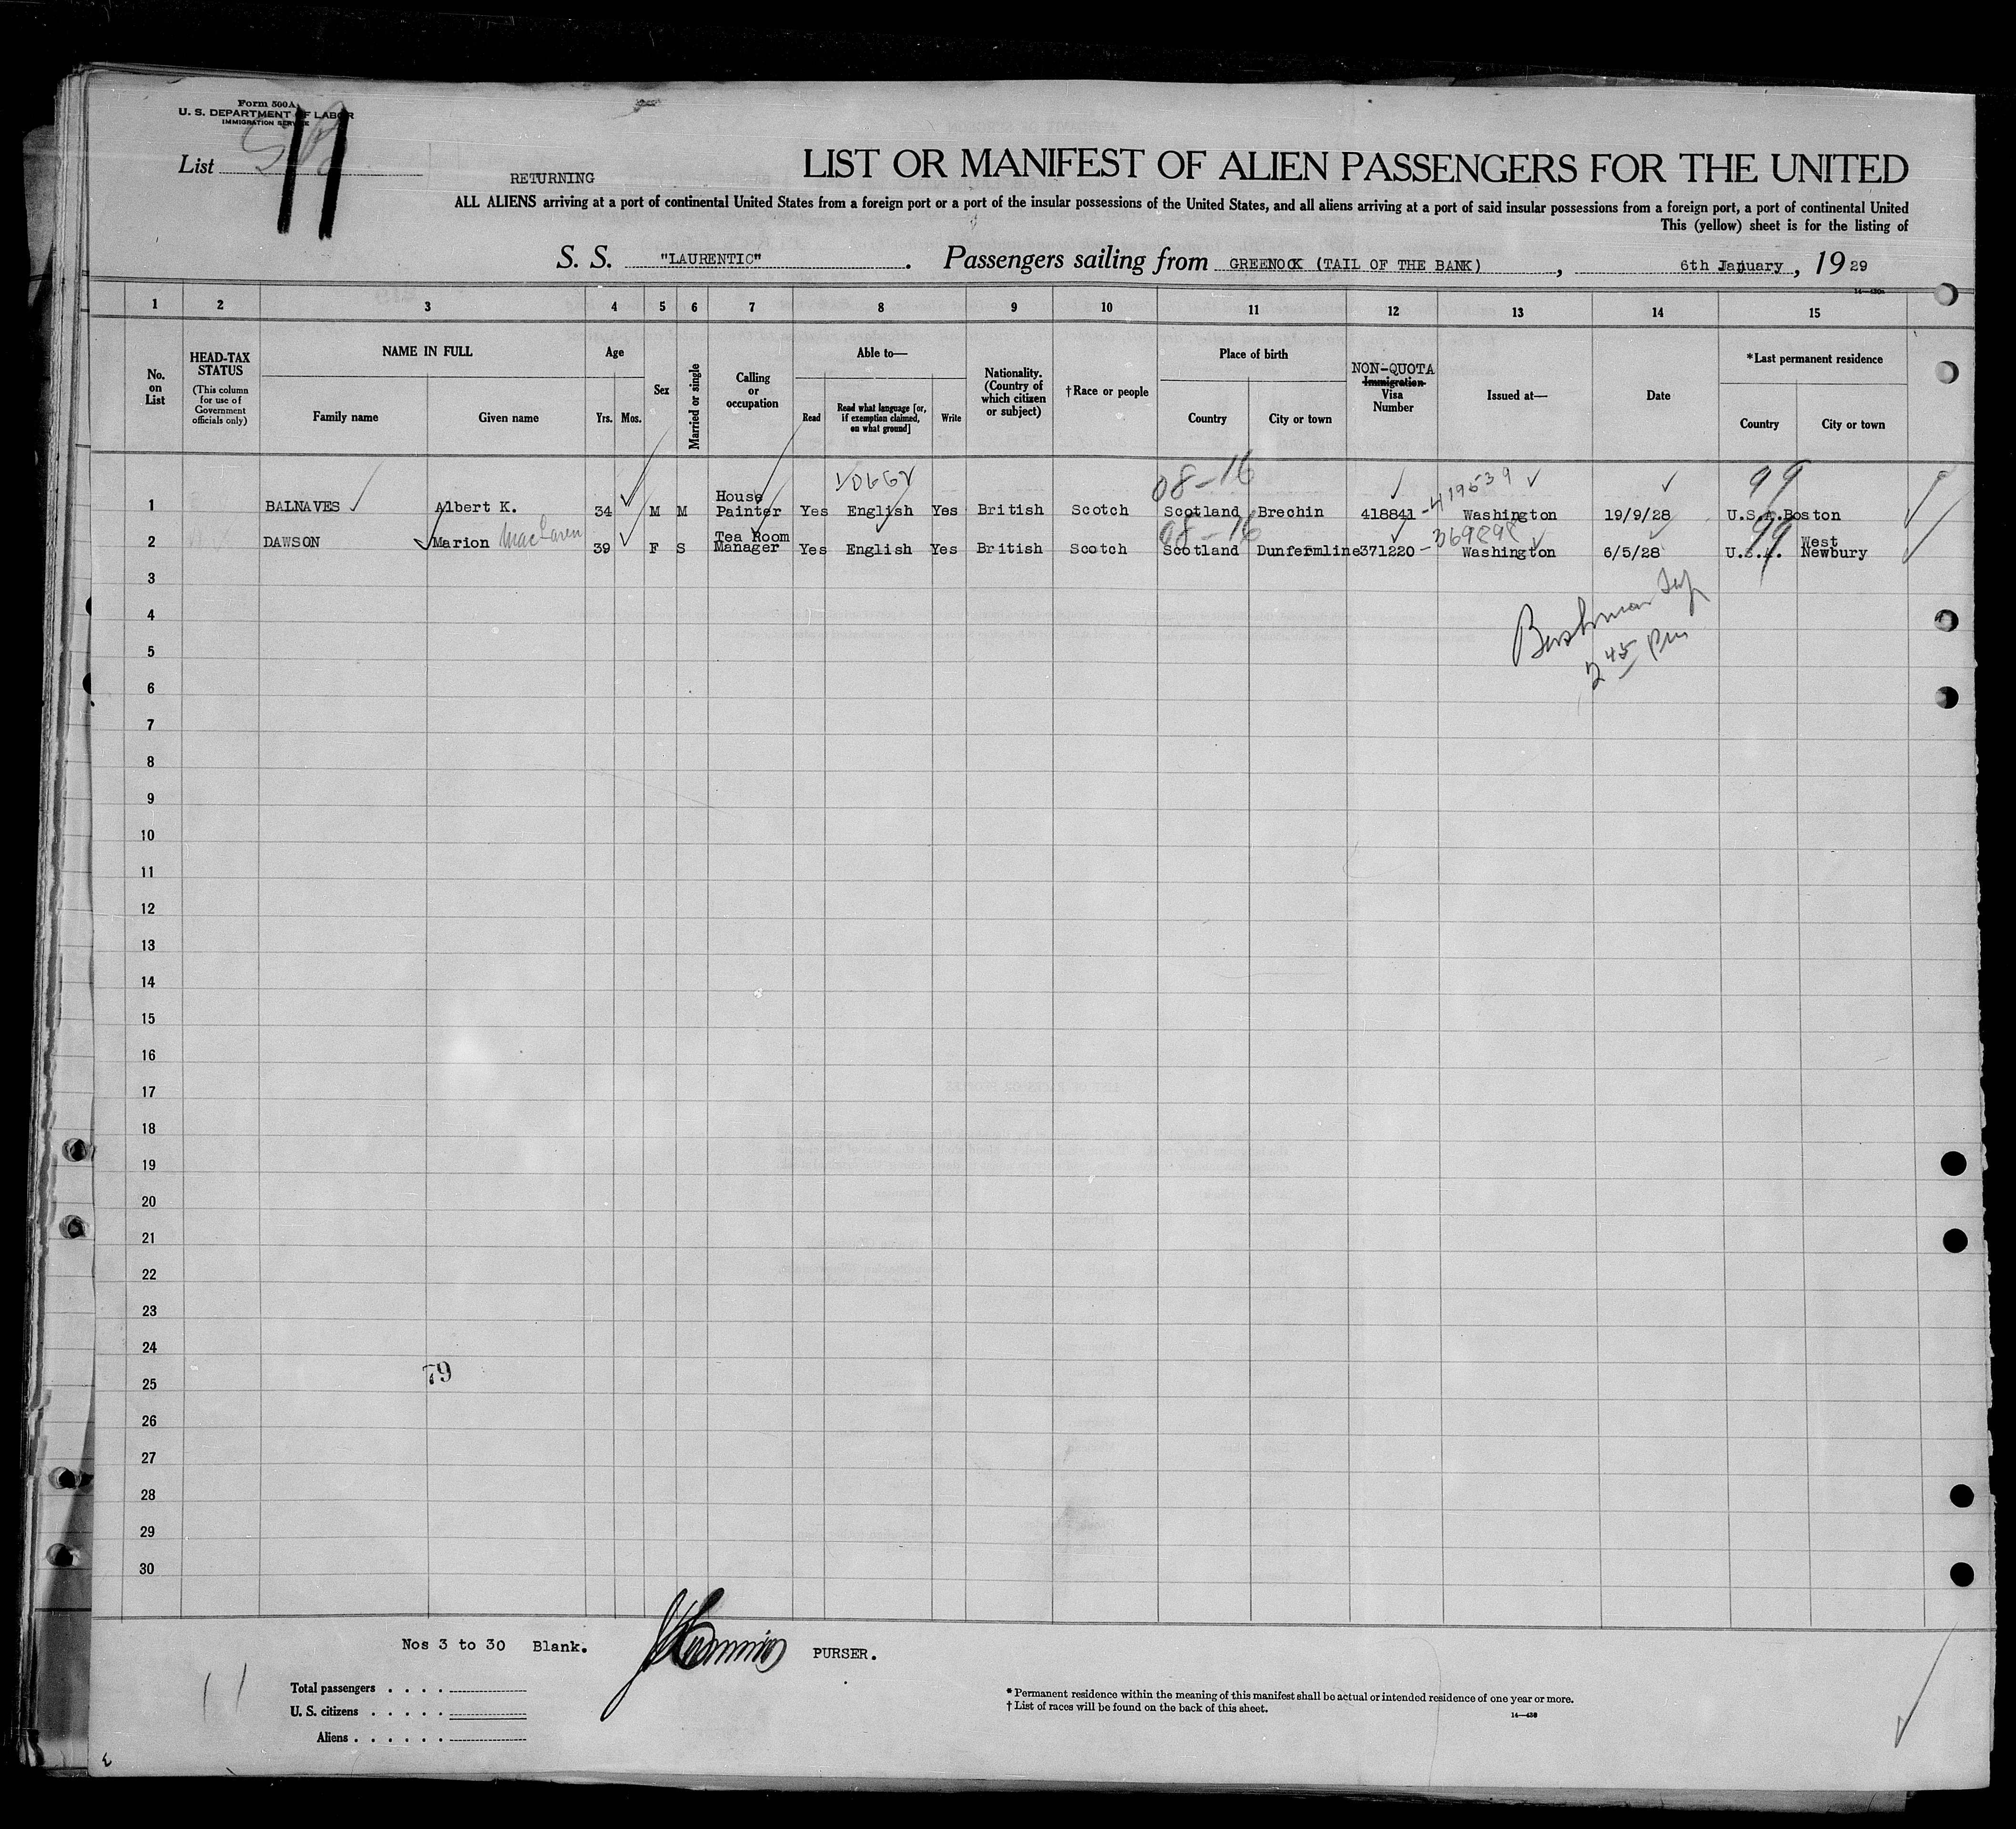 Form 500A
U. S. DEPARTMENT OF LABOR
IMMIGRATION SERVICE
List
11
RETURNING
LIST OR MANIFEST OF ALIEN PASSENGERS FOR THE UNITED
ALL ALIENS arriving at a port of continental United States from a foreign port or a port of the insular possessions of the United States, and all aliens arriving at a port of said insular possessions from a foreign port, a port of continental United
This (yellow) sheet is for the listing of
S. S. "LAURENTIC". Passengers sailing from GREENOCK (TAIL OF THE BANK), 6th January, 1929
1 2 3 4 5 6 7 8 9 10 11 12 13 14 15
No. on List
HEAD-TAX STATUS (This column for use of Government officials only)
NAME IN FULL
Family name Given name
Age
Yrs. Mos.
Sex
Married or single
Calling or occupation
Able to—
Read
Read what language [or, if exemption claimed, on what ground]
Write
Nationality. (Country of which citizen or subject)
†Race or people
Place of birth
Country City or town
NON-QUOTA
Immigration Visa Number
Issued at—
Date
*Last permanent residence
Country City or town
08-16 419539 99
1 BALNAVES Albert K. 34 M M House Painter Yes English Yes British Scotch Scotland Brechin 418841 Washington 19/9/28 U.S.A. Boston
08-16 369898 99
2 DAWSON Marion MacLaren 39 F S Tea Room Manager Yes English Yes British Scotch Scotland Dunfermline 371220 Washington 6/5/28 U.S.A. West Newbury
3
4
5
2 45 pm
6
7
8
9
10
11
12
13
14
15
16
17
18
19
20
21
22
23
24
79
25
26
27
28
29
30
Nos 3 to 30 Blank. PURSER.
Total passengers
U. S. citizens
Aliens
* Permanent residence within the meaning of this manifest shall be actual or intended residence of one year or more.
† List of races will be found on the back of this sheet.
14—430